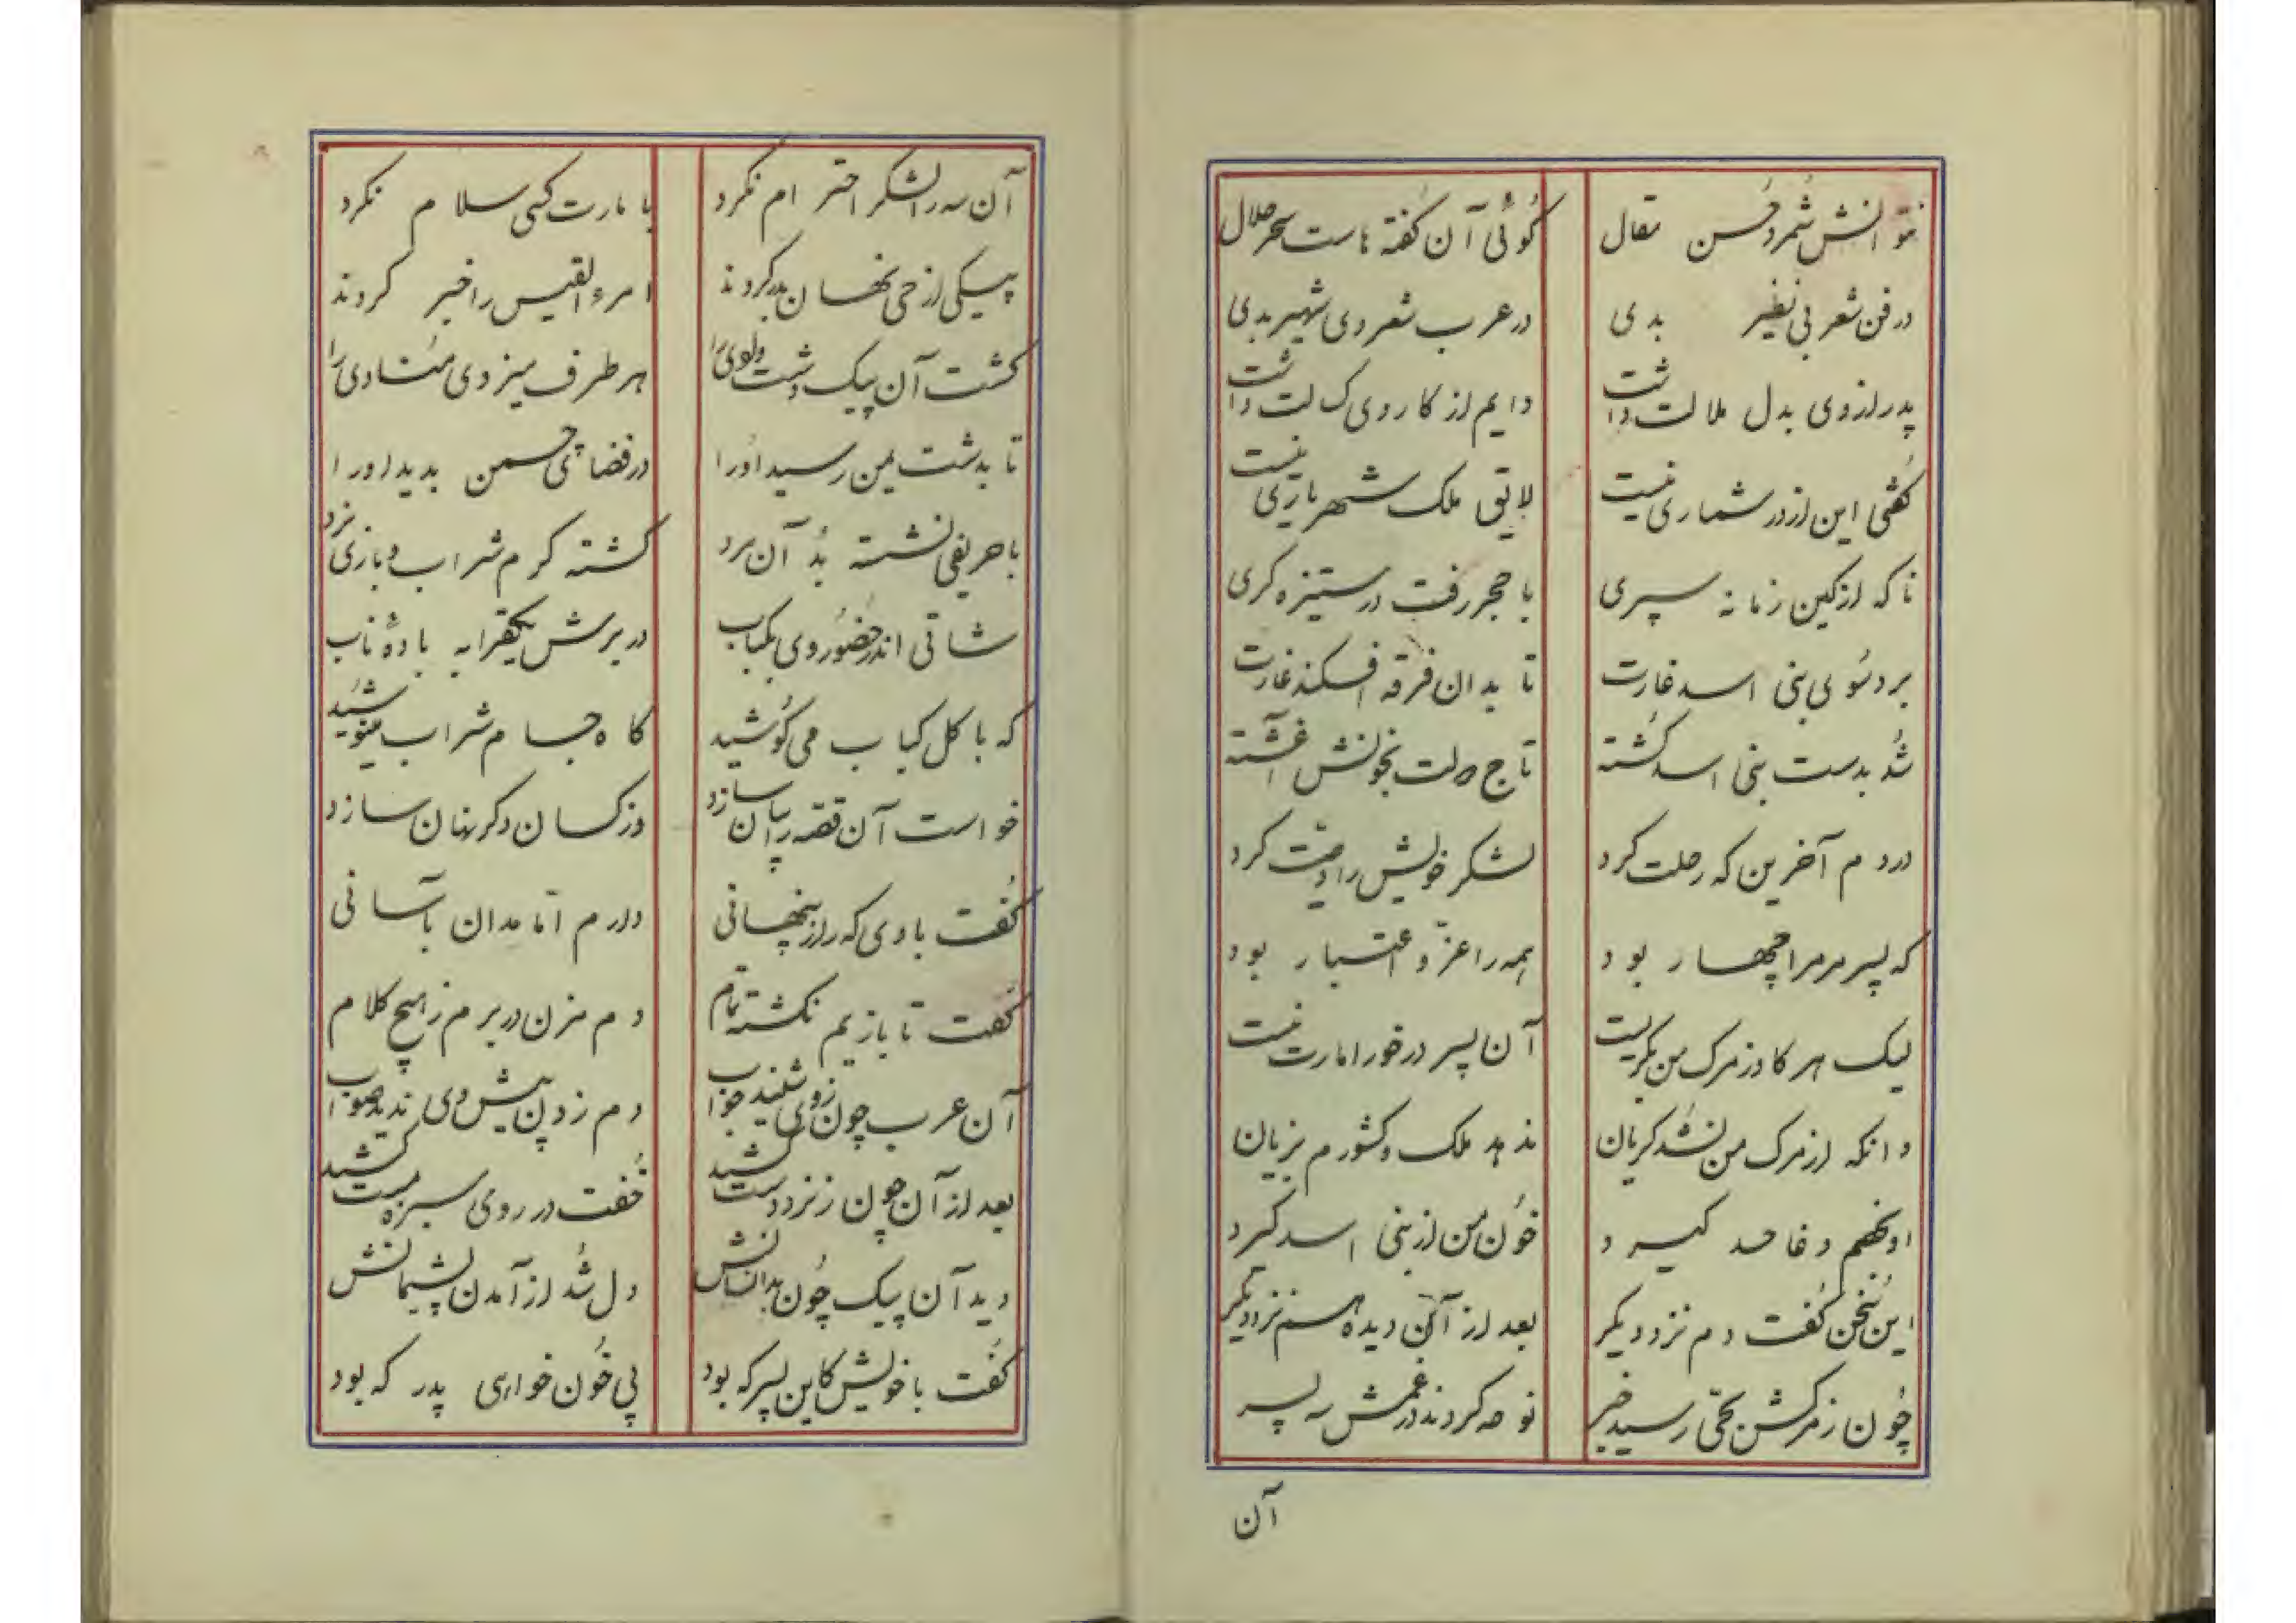 نتوانش شمرد حُسن مقال گوئی آن گفته هاست سحر حلال
در فن شعر بی نظیر بدی در عرب شعر وی شهیر بدی
پدر از وی بدل ملالت داشت دایم از کار وی کسالت داشت
گفتی این از در شماری نیست لایق ملک شهریاری نیست
تا که از کین زمانه سپری با حجر رفت در ستیزه کری
برد سوی بنی اسد غارت تا بدان فرقه افکند غارت
شد بدست بنی اسد کُشته تاج دولت بخونش آغشته
در دم آخرین که رحلت کرد لشکر خویش را وصیّت کرد
که پسر مر مرا چهار بود همه را عزّ و اعتبار بود
لیک هر کاو ز مرک من بگریست آن پسر در خور امارت نیست
وانکه از مرک من نشد کریان ندهد ملک و کشورم بزیان
او بخصم دغا حسد گیرد خون من از بنی اسد گیرد
این سخن گفت و دم نزد دیکر بعد از آن دیده هم نزد دیگر
چون ز مرگش بحّی رسید خبر نوحه کردند در غمش سه پسر
آن
آن سه را لشکر احترام نکرد با مارت کسی سلام نکرد
پیکی از حی نهان بدر کردند امرء القیس را خبر کردند
گشت آن پیک دشت و وادی را هر طرف میزدی منادی را
تا بدشت یمن رسید اورا در فضای چمن بدید اورا
با حریفی نشسته بُد آن مرد گشته گرم شراب و بازی نرد
شاتی اندر حضور وی بکباب در برش یکقرابه بادهٔ ناب
که با کل کباب می کوشید کاه جام شراب مینوشید
خواست آن قصه را بیان سازد وز کسان دگر نهان سازد
گفت با وی که راز پنهانی دارم امّا مدان بآسانی
گفت تا بازیم نگشته تمام دم مزن در برم ز هیچ کلام
آن عرب چون ز وی شنید جواب دم زدن پیش وی ندید صواب
بعد از آن چون ز نرد دست کشید خفت در روی سبزه مست کشید
دید آن پیک چون بدانسانش دل شد از آمدن پشیمانش
گفت با خویش کاین پسر که بود پی خون خواهی پدر که بود